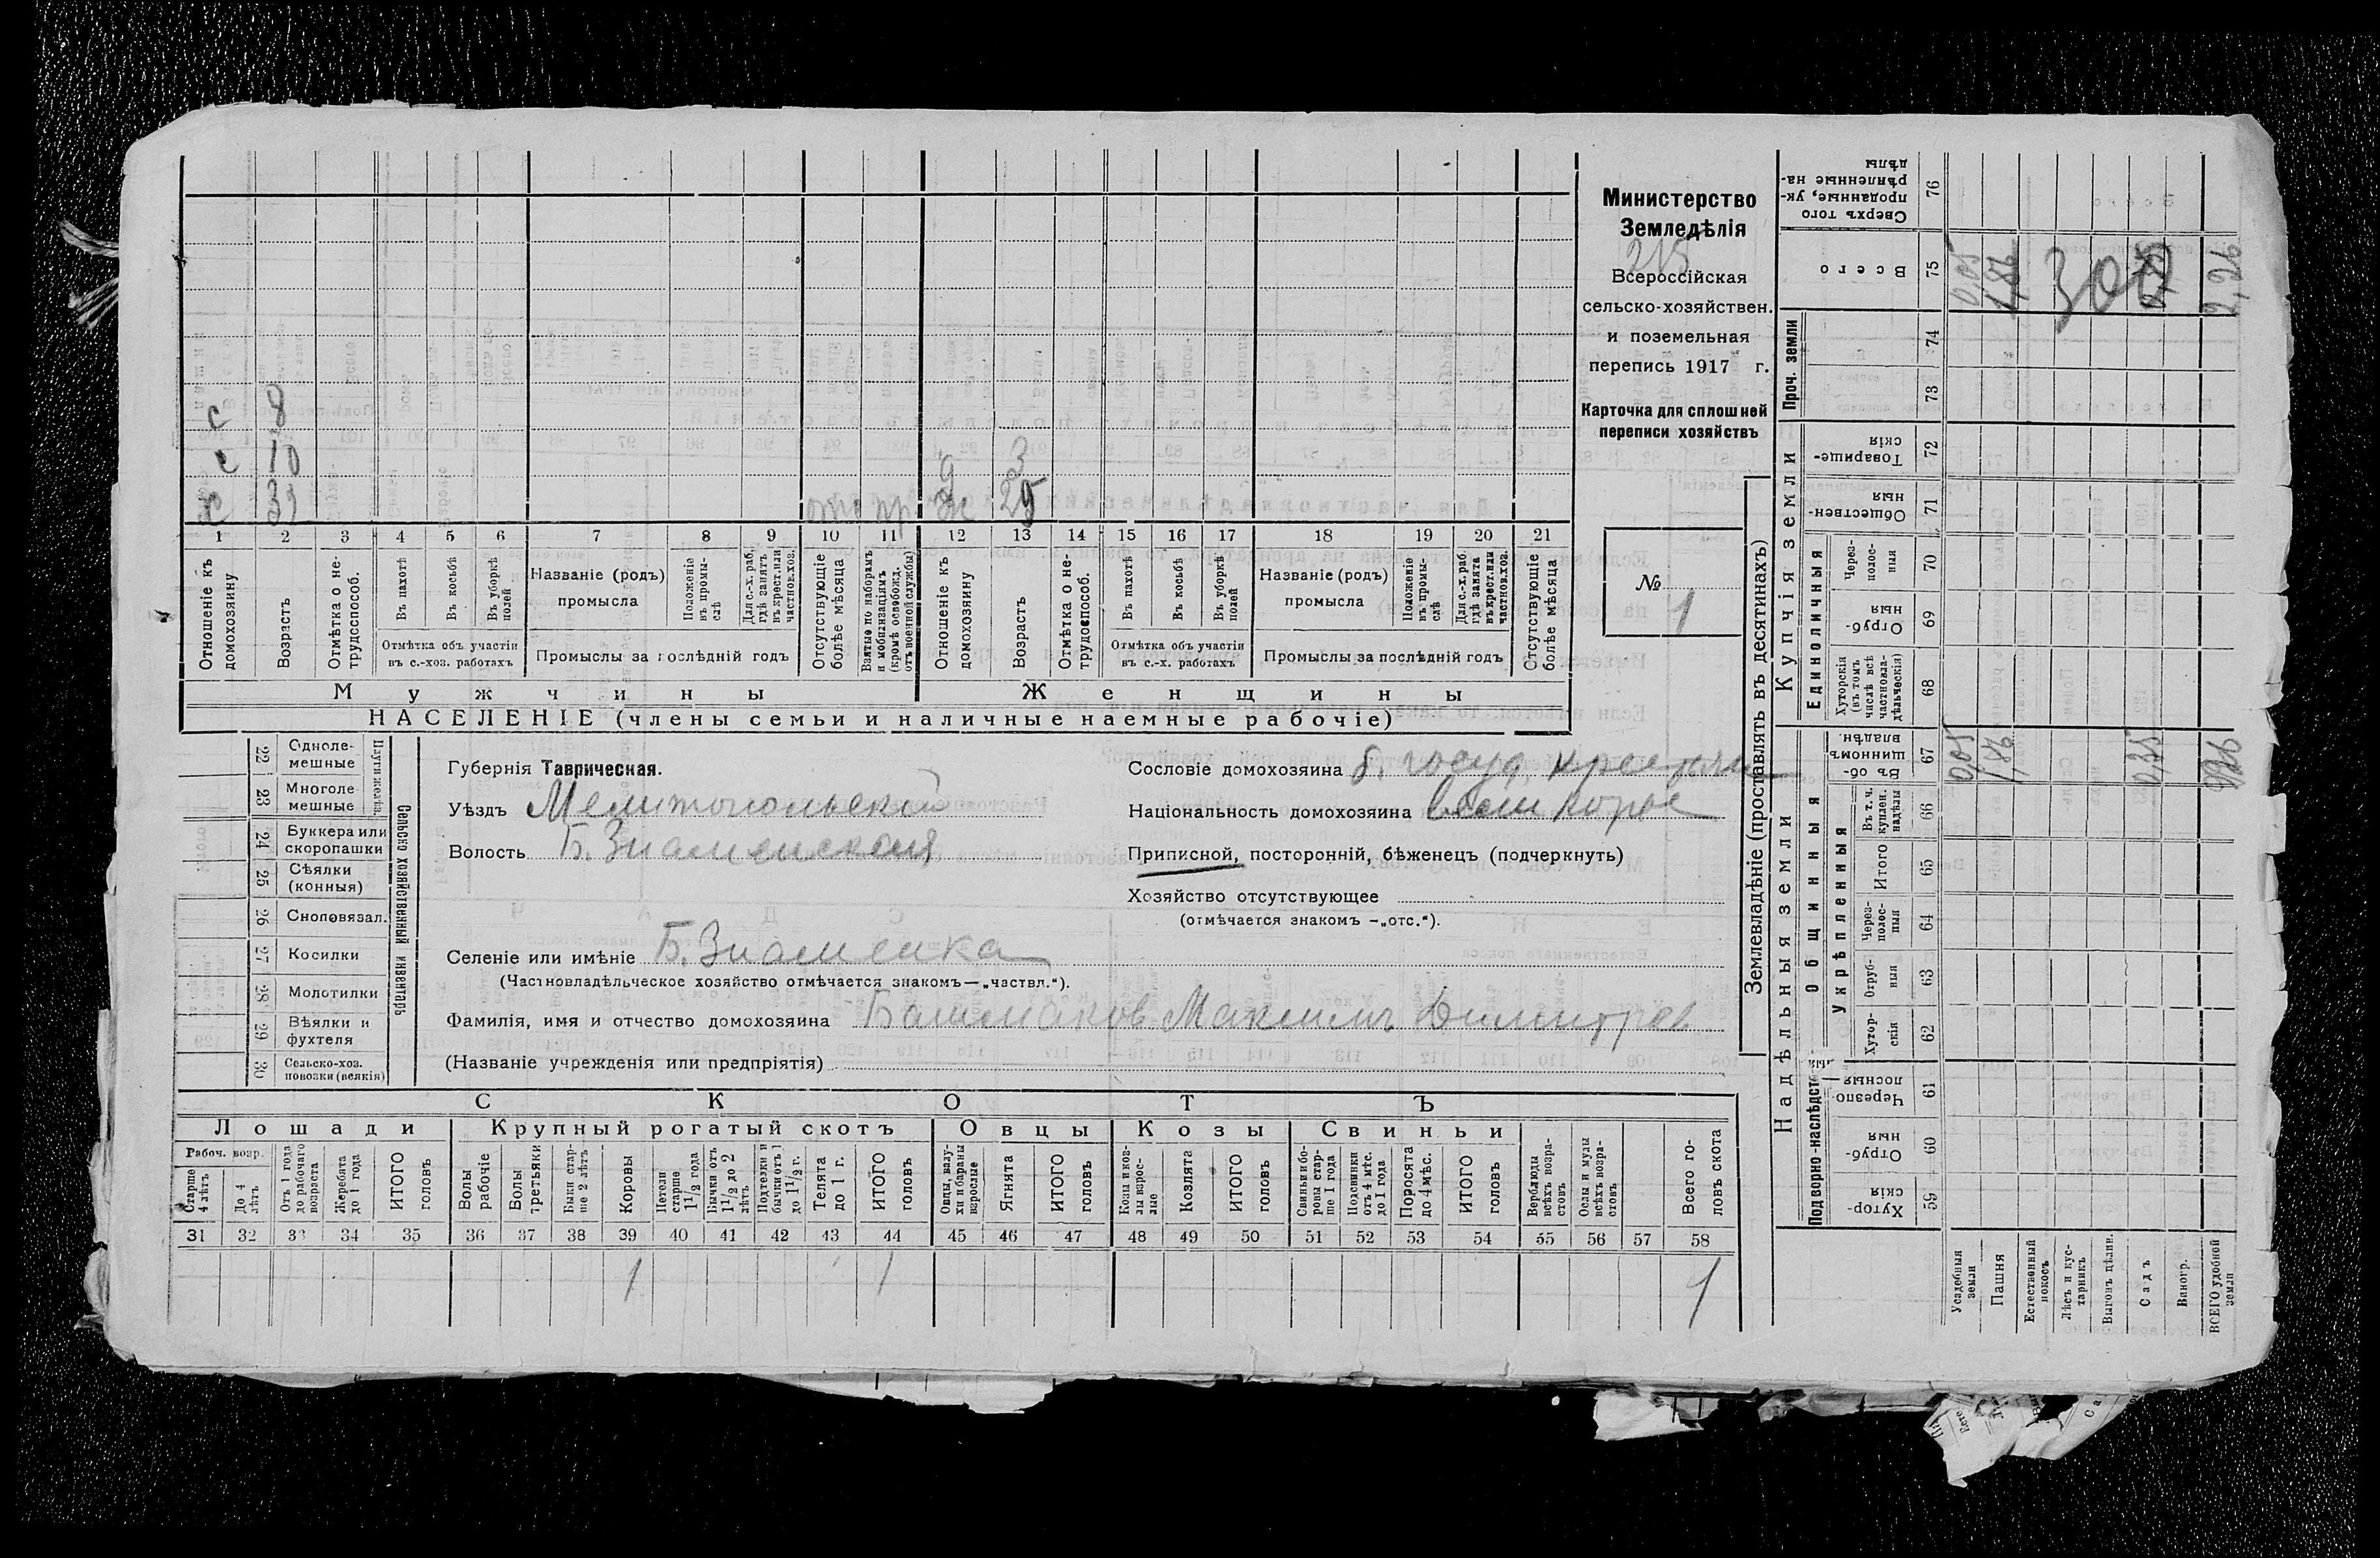 Министерство
Земледѣлія
215
Всероссійская
сельско-хозяйствен.
и поземельная
перепись 1917 г.
Карточка для сплошней
переписи хозяйствъ
№ 1
с 8
с 10 д 3
х 39 Ж 25
1 2 3 4 5 6 7 8 9 10 11 12 13 14 15 16 17 18 19 20 21
Отношеніе къ домохозяину
Возрастъ
Отмѣтка о не-трудоспособ.
Въ пахотѣ
Въ косьбѣ
Въ уборкѣ полей
Отмѣтка объ участіи въ с.-хоз. работахъ
Названіе (родъ) промысла
Положеніе въ промы-слѣ
Для с.-х. раб. гдѣ занятъ въ крест. или частнов.хоз.
Промыслы за послѣдній годъ
Отсутствующіе болѣе мѣсяца
Взятые по наборамъ и мобилизаціямъ (кромѣ освобожд. отъ военной службы)
Отношеніе къ домохозяину
Возрастъ
Отмѣтка о не-трудоспособ.
Въ пахотѣ
Въ косьбѣ
Въ уборкѣ полей
Отмѣтка объ участіи въ с.-х. работахъ
Названіе (родъ) промысла
Положеніе въ промы-слѣ
Для с.-х. раб. гдѣ занята въ крест. или частнов.хоз.
Промыслы за послѣдній годъ
Отсутствующіе болѣе мѣсяца
Мужчины Женщины
НАСЕЛЕНІЕ (члены семьи и наличные наемные рабочіе)
Сельско хозяйственный инвентарь
Плуги желѣз.
22 Одноле-мешные
23 Многоле-мешные
24 Буккера или скоропашки
25 Сѣялки (конныя)
26 Сноповязал.
27 Косилки
28 Молотилки
29 Вѣялки и фухтеля
30 Сельско-хоз. повозки (всякія)
Губернія Таврическая.
Уѣздъ Мелитопольскій
Волость Б. Знаменская
Сословіе домохозяина б. госуд. крестьян
Національность домохозяина
Приписной, посторонній, бѣженецъ (подчеркнуть)
Хозяйство отсутствующее
(отмѣчается знакомъ -„отс.“).
Селеніе или имѣніе Б. Знаменка
(Частновладѣльческое хозяйство отмѣчается знакомъ—„частвл.“).
Фамилія, имя и отчество домохозяина Башмаков Максимъ Димитров
(Названіе учрежденія или предпріятія)
СКОТЪ
Лошади Крупный рогатый скотъ Овцы Козы Свиньи
Рабоч. возр.
Старше 4 лѣтъ
До 4 лѣтъ
Отъ 1 года до рабочаго возраста
Жеребята до 1 года
ИТОГО головъ
Волы рабочіе
Волы третьяки
Быки стар-ше 2 лѣтъ
Коровы
Нетели старше 1 1/2 года
Бычки отъ 1 1/2 до 2 лѣтъ
Подтелки и бычки отъ 1 до 1 1/2 г.
Телята до 1 г.
ИТОГО головъ
Овцы, валу-хи и бараны взрослые
Ягнята
ИТОГО головъ
Козы и коз-лы взрос-лые
Козлята
ИТОГО головъ
Свиньи и бо-ровы стар-ше 1 года
Подсвинки отъ 4 мѣс. до 1 года
Поросята до 4 мѣс.
ИТОГО головъ
Верблюды всѣхъ возра-стовъ
Ослы и мулы всѣхъ возра-стовъ
Всего го-ловъ скота
31 32 33 34 35 36 37 38 39 40 41 42 43 44 45 46 47 48 49 50 51 52 53 54 55 56 57 58
1 1 1
Землевладѣніе (проставлять въ десятинахъ)
Надѣльныя земли Купчія земли Проч. земли
Подворно-наслѣдств Общинныя Единоличныя
Укрѣпленныя
59 Хутор-скія
60 Отруб-ныя
61 Черезпо-лосныя
62 Хутор-скія
63 Отруб-ныя
64 Через-полос-ныя
65 Итого
66 Въ т. ч. куплен. надѣлы
67 Въ об-щинномъ владѣн.
68 Хуторскія (въ томъ числѣ всѣ частновла-дѣльческія)
69 Отруб-ныя
70 Через-полос-ныя
71 Обществен-ныя
72 Товарище-скія
73
74
75 Всего
76 Сверхъ того проданные, ук-рѣпленные на-дѣлы
Усадебныя земли 0,05 0,05
Пашня 1,86 1,86
Естественный покосъ
300
Лѣсъ и кус-тарникъ
Выгонъ цѣлин.
Садъ 0,35
Виногр.
ВСЕГО удобной земли 2,26 2,26